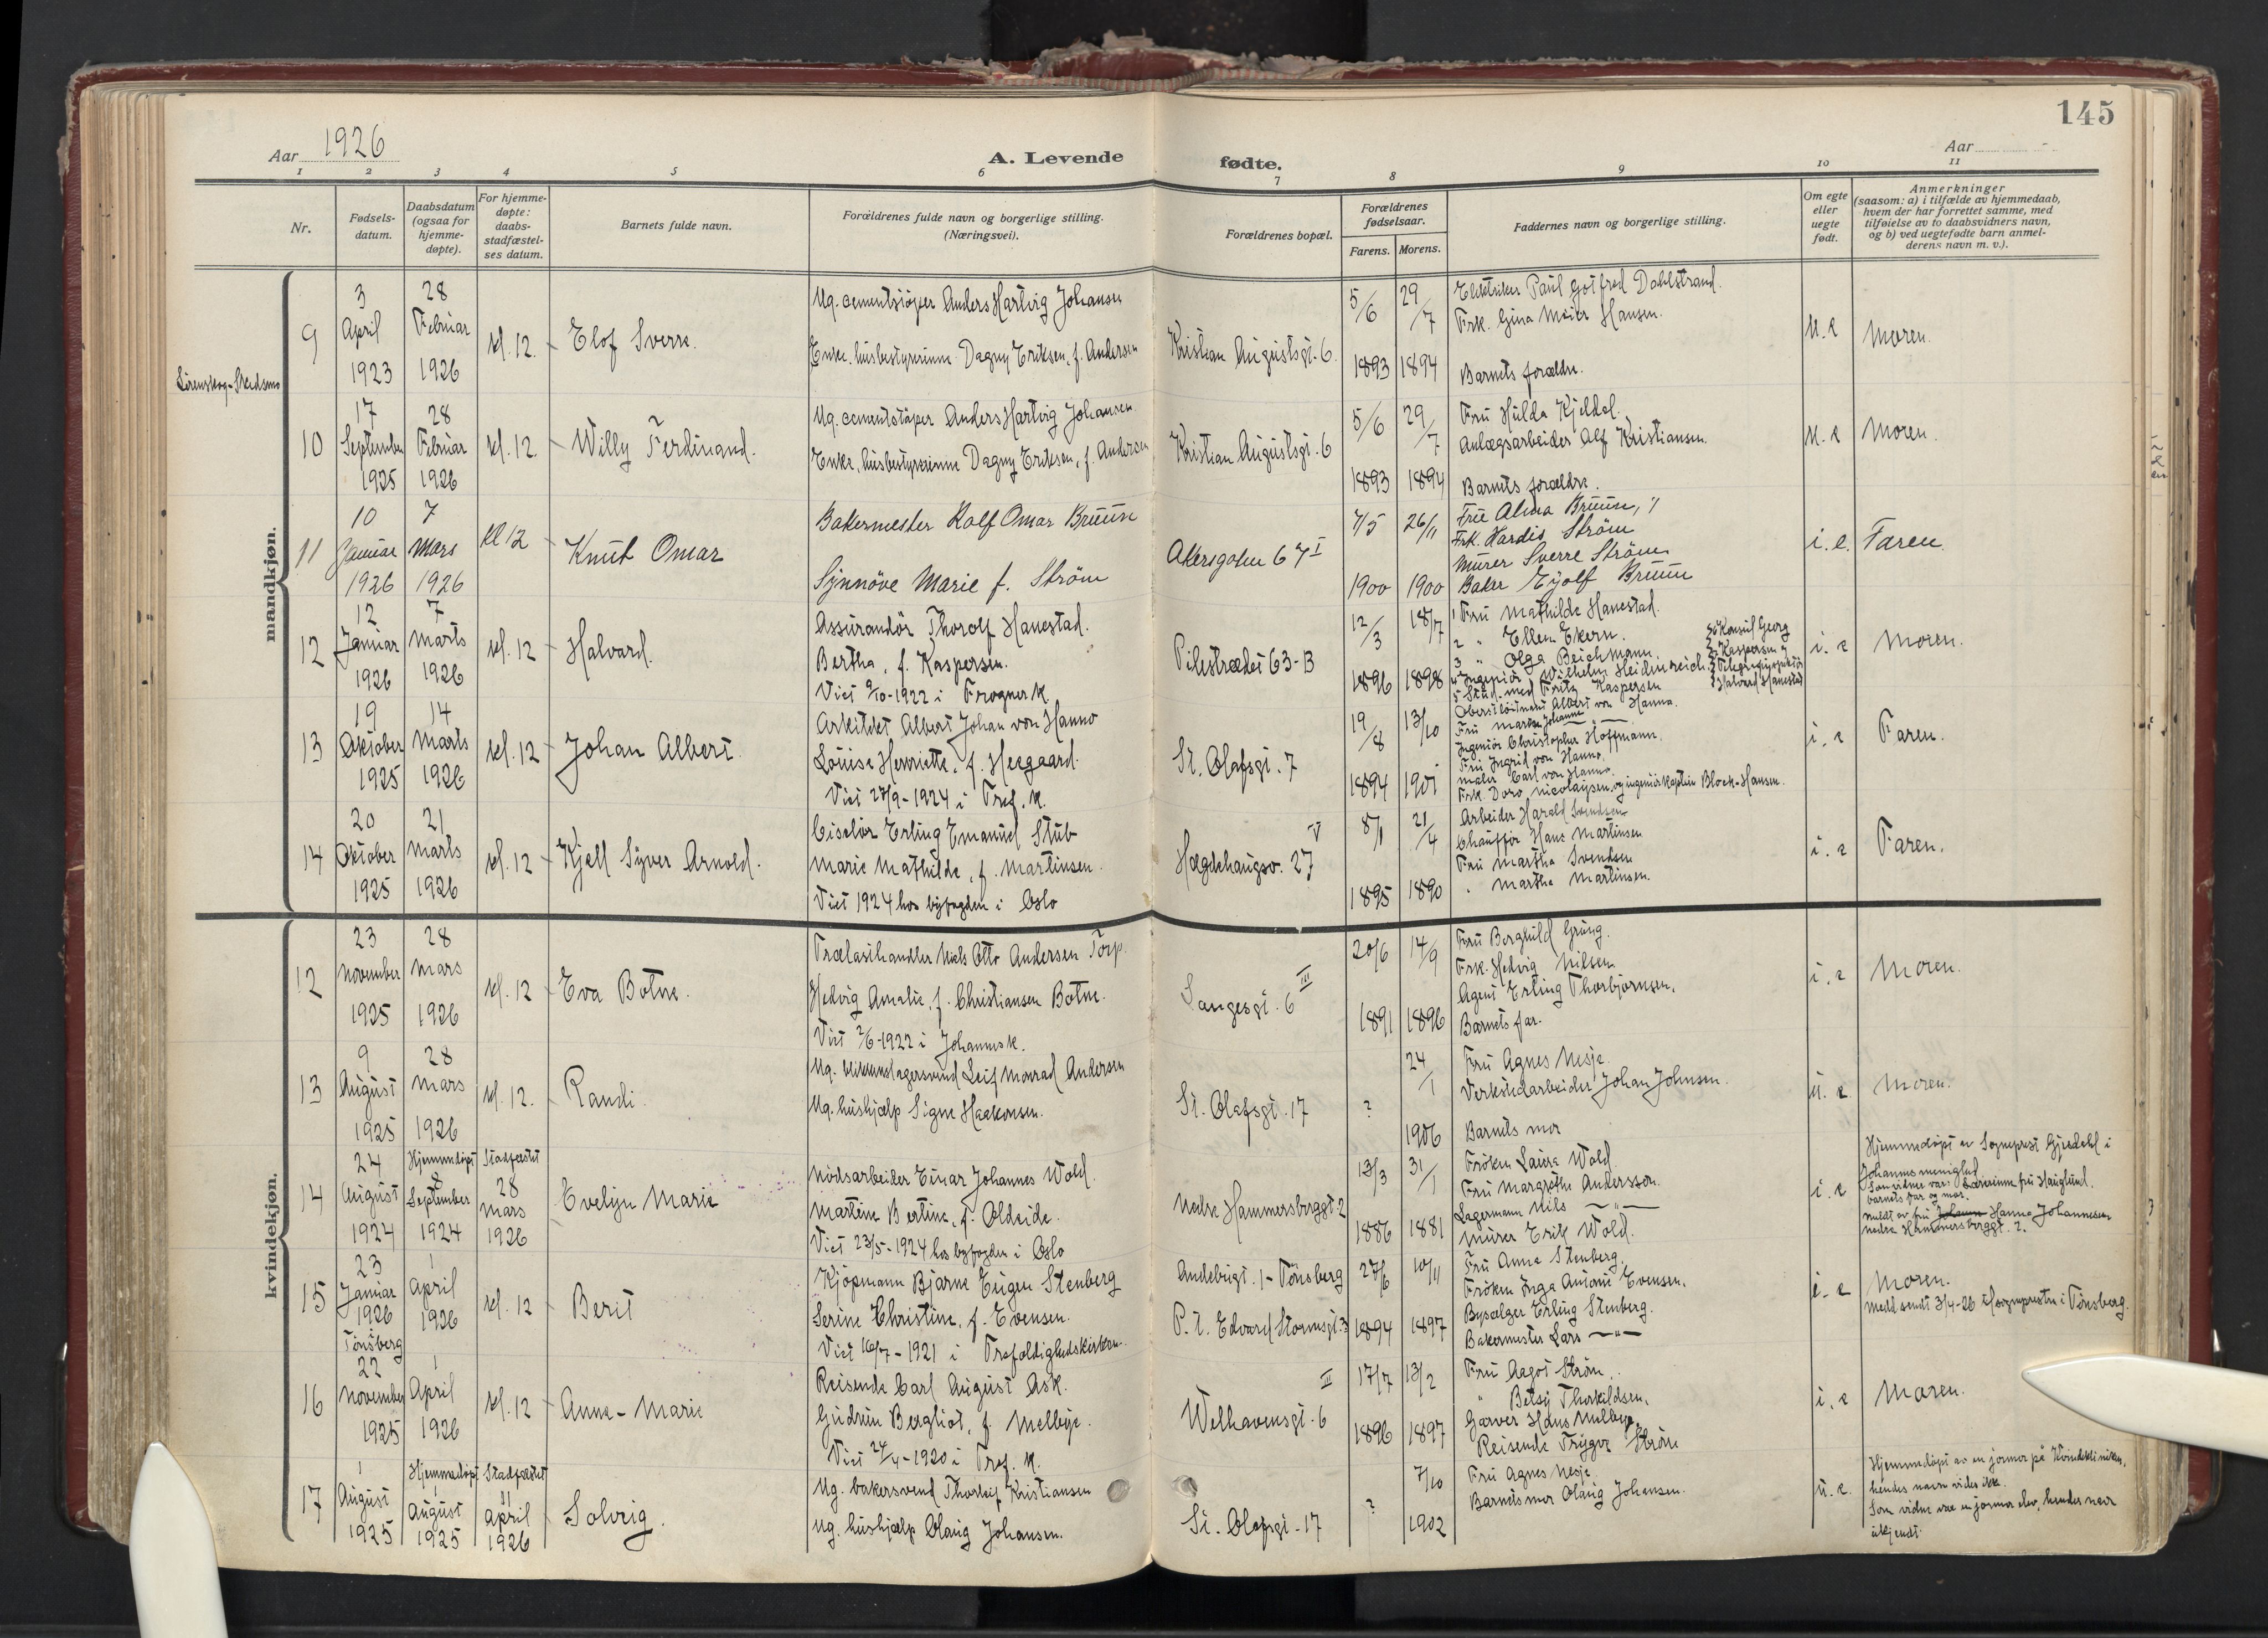 145
Aar 1926
A. Levende fødte.
Aar
1 2 3 4 5 6 7 8 9 10 11
Nr.
Fødsels-
datum.
Daabsdatum
(ogsaa for
hjemme-
døpte).
For hjemme-
døpte:
daabs-
stadfæstel-
ses datum.
Barnets fulde navn.
Forældrenes fulde navn og borgerlige stilling.
(Næringsvei).
Forældrenes bopæl.
Forældrenes
fødselsaar.
Farens. Morens.
Faddernes navn og borgerlige stilling.
Om egte
eller
uegte
født.
Anmerkninger
(saasom: a) i tilfælde av hjemmedaab,
hvem der har forrettet samme, med
tilføielse av to daabsvidners navn,
og b) ved uegtefødte barn anmel-
derens navn m. v.).
mandkjøn.
9
Lørenskog-Skedsmo
3
April
1923
28
Februar
1926
kl. 12.
Elof Sverre.
Ug. cementstöper Anders Hartvig Johansen
Enke. husbestyrerinne Dagny Eriksen, f. Andersen
Kristian Augustsgt. 6.
5/6
1893
29/7
1894
Elektriker Paul Gotfred Dahlstrand.
Frk. Gina Meier Hansen.
Barnets forældre.
u. e
Moren.
10
17
September
1925
28
Februar
1926
kl. 12.
Willy Ferdinand.
Ug. cementstöper Anders Hartvig Johansen
Enke, husbestyrerinne Dagny Eriksen, f. Andersen
Kristian Augustsgt. 6
5/6
1893
29/7
1894
Fru Hulda Kjeldal.
Anlægsarbeider Alf Kristiansen.
Barnets forældre.
u. e
Moren.
11
10
Januar
1926
7
Mars
1926
kl 12
Knut Omar
Bakermester Rolf Omar Bruun
Synnöve Marie f. Ström
Akersgaten 67 I
7/5
1900
26/11
1900
Frue Alma Bruun,
Frk. Hardis Ström
Murer Sverre Ström
Baker Eyolf Bruun
i. e.
Faren.
12
12
Januar
1926
7
Marts
1926
kl. 12
Halvard.
Assurandör Thorolf Hanestad.
Bertha, f. Kaspersen.
Viet 9/10-1922 i Frogner K.
Pilestrædet 63-B
12/3
1896
18/7
1898
1 Fru Mathilde Hanestad.
2 " Ellen Ekern.
3 " Olga Beichmann.
4 Ingeniör Wilhelm Heidenreich.
5 Stud. med Fritz Kaspersen
6 Konsul Georg
Kaspersen
7 Telegrafinspektör
Halvard Hanestad
i. e
Moren.
13
19
Oktober
1925
14
Marts
1926
kl. 12
Johan Albert
Arkitekt Albert Johan von Hanno
Louise Henriette, f. Heegaard.
Viet 27/9-1924 i Tref. K.
St. Olafsgt. 7
19/8
1894
13/10
1901
Oberstlöitnant Albert von Hanno.
Fru Marna Johanne —"—
Ingeniör Christopher Hoffmann.
Fru Ingrid von Hanno.
Maler Carl von Hanno.
Frk. Doro Nicolaysen, og ingeniörkaptein Block-Hansen.
i. e
Faren.
14
20
Oktober
1925
21
Marts
1926
kl. 12
Kjell Syver Arnold.
Ciselör Erling Emanuel Stub
Marie Mathilde, f. Martinsen.
Viet 1924 hos byfogden i Oslo
Hægdehaugsv. 27 V
8/1
1895
21/4
1890
Arbeider Harald Svendsen
Chaufför Hans Martinsen
Fru Martha Svendsen
" Martha Martinsen.
i. e
Faren.
kvindekjøn.
12
23
November
1925
28
Mars
1926
kl. 12
Eva Botne.
Trælasthandler Niels Otto Andersen Torp.
Hedvig Amalie, f. Christiansen Botne.
Viet 2/6-1922 i Johannesk.
Langesgt. 6 III
20/6
1891
14/9
1896
Fru Borghild Gräng.
Frk. Hedvig Nilsen
Agent Erling Thorbjörnsen.
Barnets far.
i. e
Moren.
13
9
August
1925
28
Mars
1926
kl. 12.
Randi.
Ug. blikkenslagersvend Leif Monrad Andersen
Ug. hushjælp Signe Haakonsen.
St. Olafsgt. 17
?
24/1
1906
Fru Agnes Nesje.
Verkstedarbeider Johan Johnsen.
Barnets mor
u. e.
Moren.
14
24
August
1924
Hjemmedöpt
8
September
1924
Stadfæstet
28
Mars
1926
Evelyn Marie
Nödsarbeider Einar Johannes Wold.
Martine Bertine, f. Oldeide.
Viet 23/5-1924 hos byfogden i Oslo
Nedre Hammersborggt. 2
13/3
1886
31/1
1881
Fröken Laura Wold
Fru Margrethe Andersson.
Lagermann Nils —"—
Murer Erik Wold.
i. e
Hjemmedöpt av Sogneprest Gjeddahl i
Johannes menighed
Som vidner var: Lærerinne fru Hauglund,
barnets far og mor.
Meldt av fru Hanna Johannesen
Nedre Hammersborggt. 2.
15
23
Januar
1926
Tönsberg
1
April
1926
kl. 12
Berit
Kjöpmann Bjarne Eugen Stenberg
Serine Christine, f. Evensen.
Viet 16/7-1921 i Trefoldighedskirken.
Andebugt. 1-Tönsberg
P. t. Edvard Stormsgt. 3
27/6
1894
10/11
1897
Fru Anna Stenberg.
Fröken Inga Antonie Evensen.
Bysælger Erling Stenberg.
Bakermester Lars —"—
i. e
Moren.
Medd. sendt 3/4-26 til sognepresten i Tönsberg.
16
22
November
1925
1
April
1926
kl. 12
Anne-Marie
Reisende Carl August Ask.
Gudrun Bergliot, f Melbye.
Viet 24/4-1920 i Tref. K.
Welhavensgt. 6 III
17/7
1896
13/2
1897
Fru Aagot Ström,
" Betsy Thorkildsen,
Garver Hans Melbye,
Reisende Trygve Ström
i. e
Moren.
17
1
August
1925
Hjemmedöpt
1
August
1925
Stadfæstet
11
April
1926
Solveig.
Ug. bakersvend Thorleif Kristiansen
Ug. hushjælp Olaug Johansen.
St. Olafsgt-17
?
7/10
1902
Fru Agnes Nesje.
Barnets mor Olaug Johansen.
u. e.
Hjemmedöpt av en jormor på Kvindeklinikken,
hendes navn vides ikke.
Som vidne var en jormor elev, hendes navn
ukjendt.